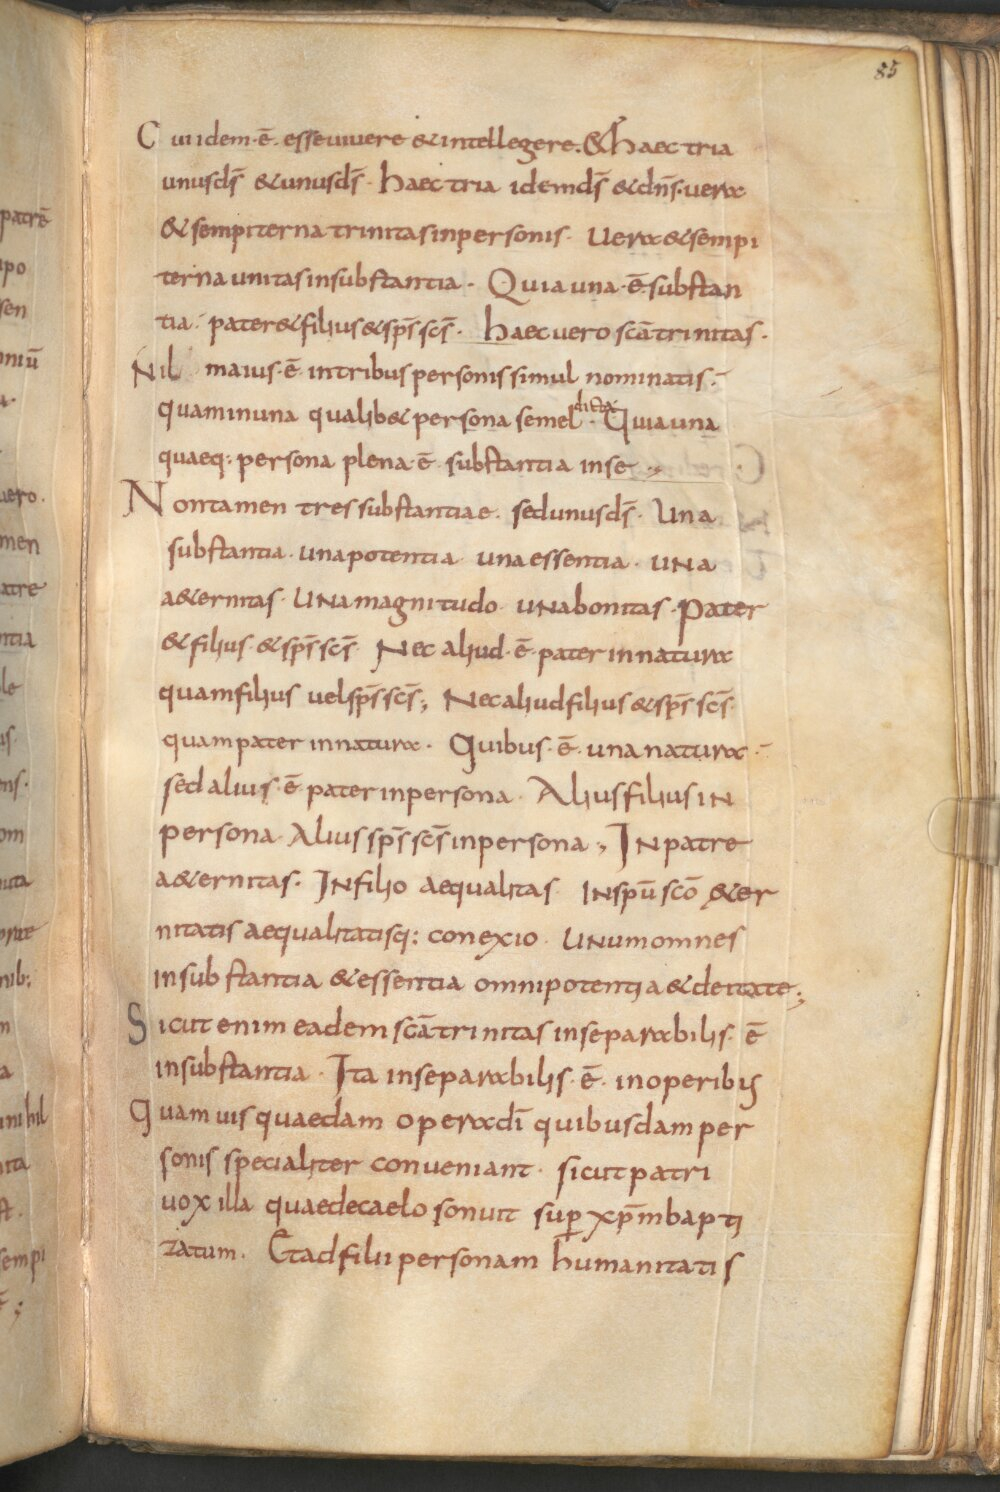 85
Cui idem·ē· esse uiuere & intellegere. & haec tria
unus d̄s & unus d̄s· haec tria idem d̄s & dn̄s· uera
& sempiterna trinitas in personis· Uera & sempi
terna unitas in substantia· Quia una·ē· substan
tia· pater & filius & sp̄s sc̄s· haec uero sc̄a trinitas·
Nil maius·ē· in tribus personis simul nominatis·
quam in una qualib& persona semel dicta· Quia una
quaeq: persona plena·ē· substantia in se·,
Non tamen tres substantiae· sed unus d̄s· Una
substantia· una potentia· una essentia· una
a&ernitas· una magnitudo· una bonitas· Pater
& filius· & sp̄s sc̄s· Nec aliud·ē· pater in natura
quam filius uel sp̄s sc̄s; Nec aliud filius & sp̄s sc̄s·
quam pater in natura· Quibus·ē· una natura·
sed alius·ē· pater in persona· Alius filius in
persona· Alius sp̄s sc̄s in persona; In patre
a&ernitas· In filio aequalitas· In spū scō &er
nitatis aequalitatisq: conexio· Unum omnes
in substantia & essentia omnipotentia & deitate;
Sicut enim eadem sc̄a trinitas inseparabilis·ē·
in substantia· Ita inseparabilis·ē· in operibus
Quam uis quaedam opera dī quibusdam per
sonis specialiter conueniant· sicut patri
uox illa quae de caelo sonuit sup xp̄m bapti
zatum· Et ad filii personam humanitatis